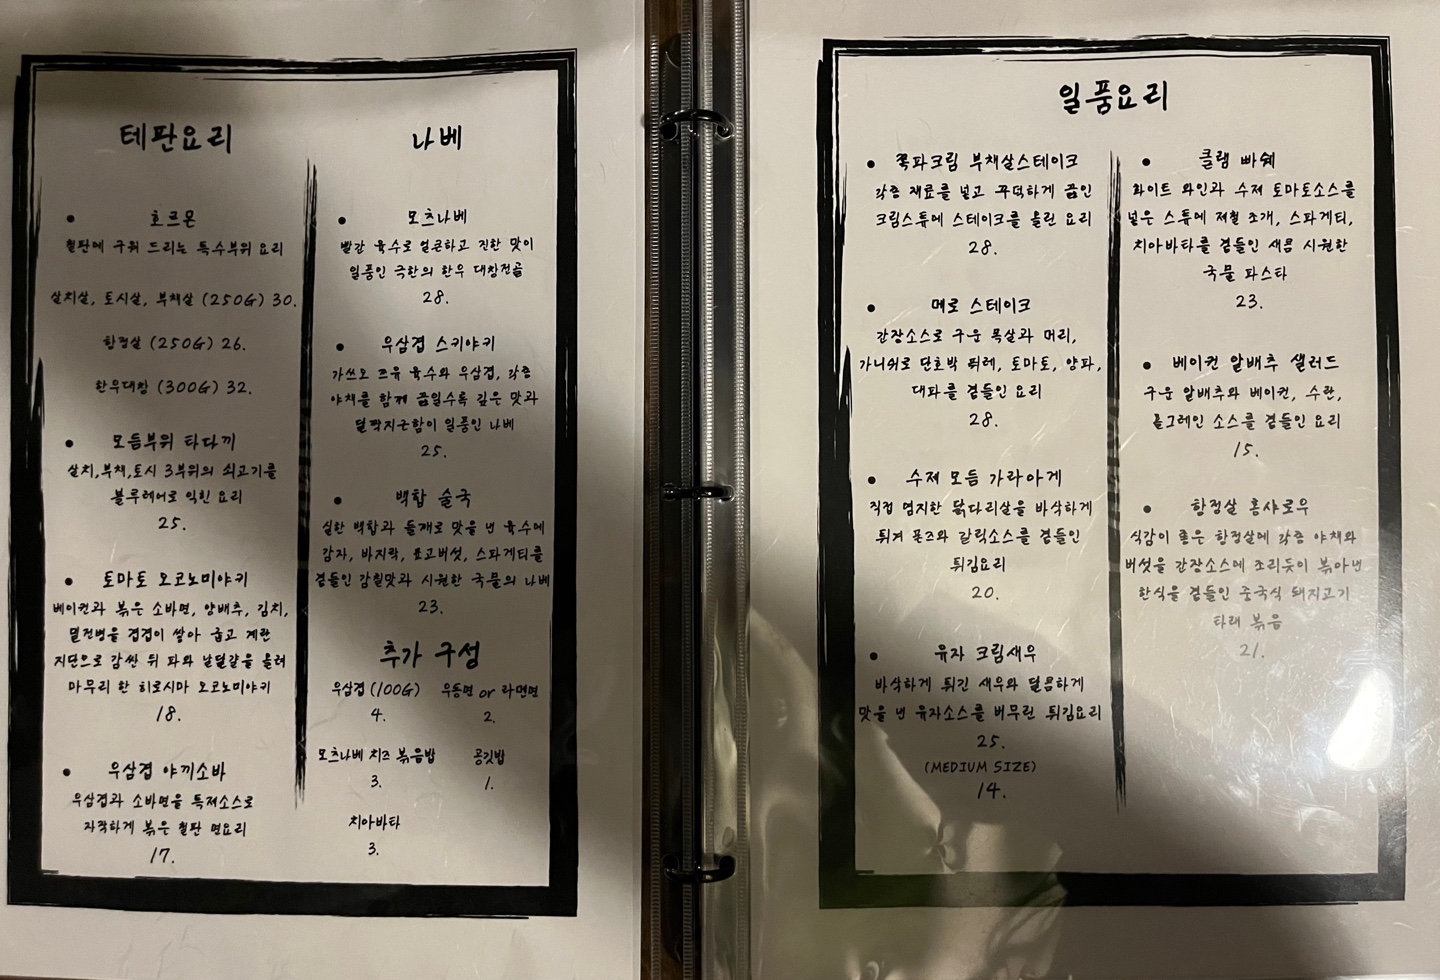 테판요리
호르몬
철판에 구워 드리는 특수부위 요리
살치살, 토시살, 부채살 (250G) 30.
항정살 (250G) 26.
한우대창 (300G) 32.
모듬부위 타다끼
살치,부채,토시 3부위의 쇠고기를
블루레어로 익힌 요리
25.
토마토 오코노미야키
베이컨과 볶은 소바면, 양배추, 김치,
밀전병을 겹겹이 쌓아 굽고 계란
지단으로 감싼 뒤 파와 날달걀을 올려
마무리 한 히로시마 오코노미야키
18.
우삼겹 야끼소바
우삼겹과 소바면을 특제소스로
자작하게 볶은 철판 면요리
17.
나베
모츠나베
빨간 육수로 얼큰하고 진한 맛이
일품인 극한의 한우 대창전골
28.
우삼겹 스키야키
가쓰오 쯔유 육수와 우삼겹, 각종
야채를 함께 끓일수록 깊은 맛과
달짝지근함이 일품인 나베
25.
백합 술국
실한 백합과 들깨로 맛을 낸 육수에
감자, 바지락, 표고버섯, 스파게티를
곁들인 감칠맛과 시원한 국물의 나베
23.
추가 구성
우삼겹 (100G) 우동면 or 라멘면
4. 2.
모츠나베 치즈 볶음밥 공깃밥
3. 1.
치아바타
3.
일품요리
꽃파크림 부채살스테이크
각종 재료를 넣고 꾸덕하게 끓인
크림스튜에 스테이크를 올린 요리
28.
메로 스테이크
간장소스로 구운 목살과 머리,
가니쉬로 단호박 퓌레, 토마토, 양파,
대파를 곁들인 요리
28.
수제 모듬 가라아게
직접 염지한 닭다리살을 바삭하게
튀겨 폰즈와 갈릭소스를 곁들인
튀김요리
20.
유자 크림새우
바삭하게 튀긴 새우와 달콤하게
맛을 낸 유자소스를 버무린 튀김요리
25.
(MEDIUM SIZE)
14.
클램 빠쉐
화이트 와인과 수제 토마토소스를
넣은 스튜에 제철 조개, 스파게티,
치아바타를 곁들인 새콤 시원한
국물 파스타
23.
베이컨 알배추 샐러드
구운 알배추와 베이컨, 수란,
홀그레인 소스를 곁들인 요리
15.
항정살 홍샤로우
식감이 좋은 항정살에 각종 야채와
버섯을 간장소스에 조리듯이 볶아낸
한식을 곁들인 중국식 돼지고기
타래 볶음
21.